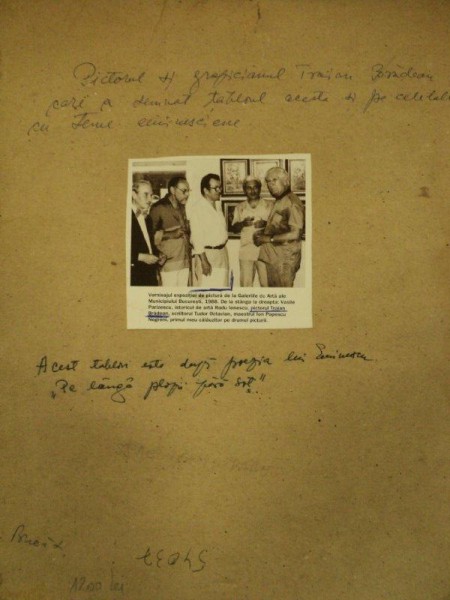 Pictorul și graficianul Traian Brădean
care a semnat tabloul acesta și pe celelalte
cu teme eminesciene
Vernisajul expoziției de pictură de la Galeriile cu Artă ale
Municipiului București, 1986. De la stânga la dreapta: Vasile
Parizescu, istoricul de artă Radu Ionescu, pictorul Traian
Brădean, scriitorul Tudor Octavian, maestrul Ion Popescu
Negreni, primul meu călăuzitor pe drumul picturii
Acest tablou este după poezia lui Eminescu
"Pe lângă plopii fără soț."
1200 lei